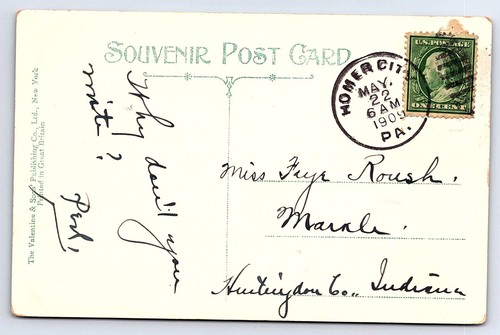 SOUVENIR POST CARD
The Valentine & Sons' Publishing Co., Ltd., New York
Printed in Great Britain
Why don't you
write?
HOMER CITY
MAY.
22
6 AM
1909
PA.
U.S. POSTAGE
ONE CENT
Miss Faye Roush.
Markle.
Huntingdon Co., Indiana